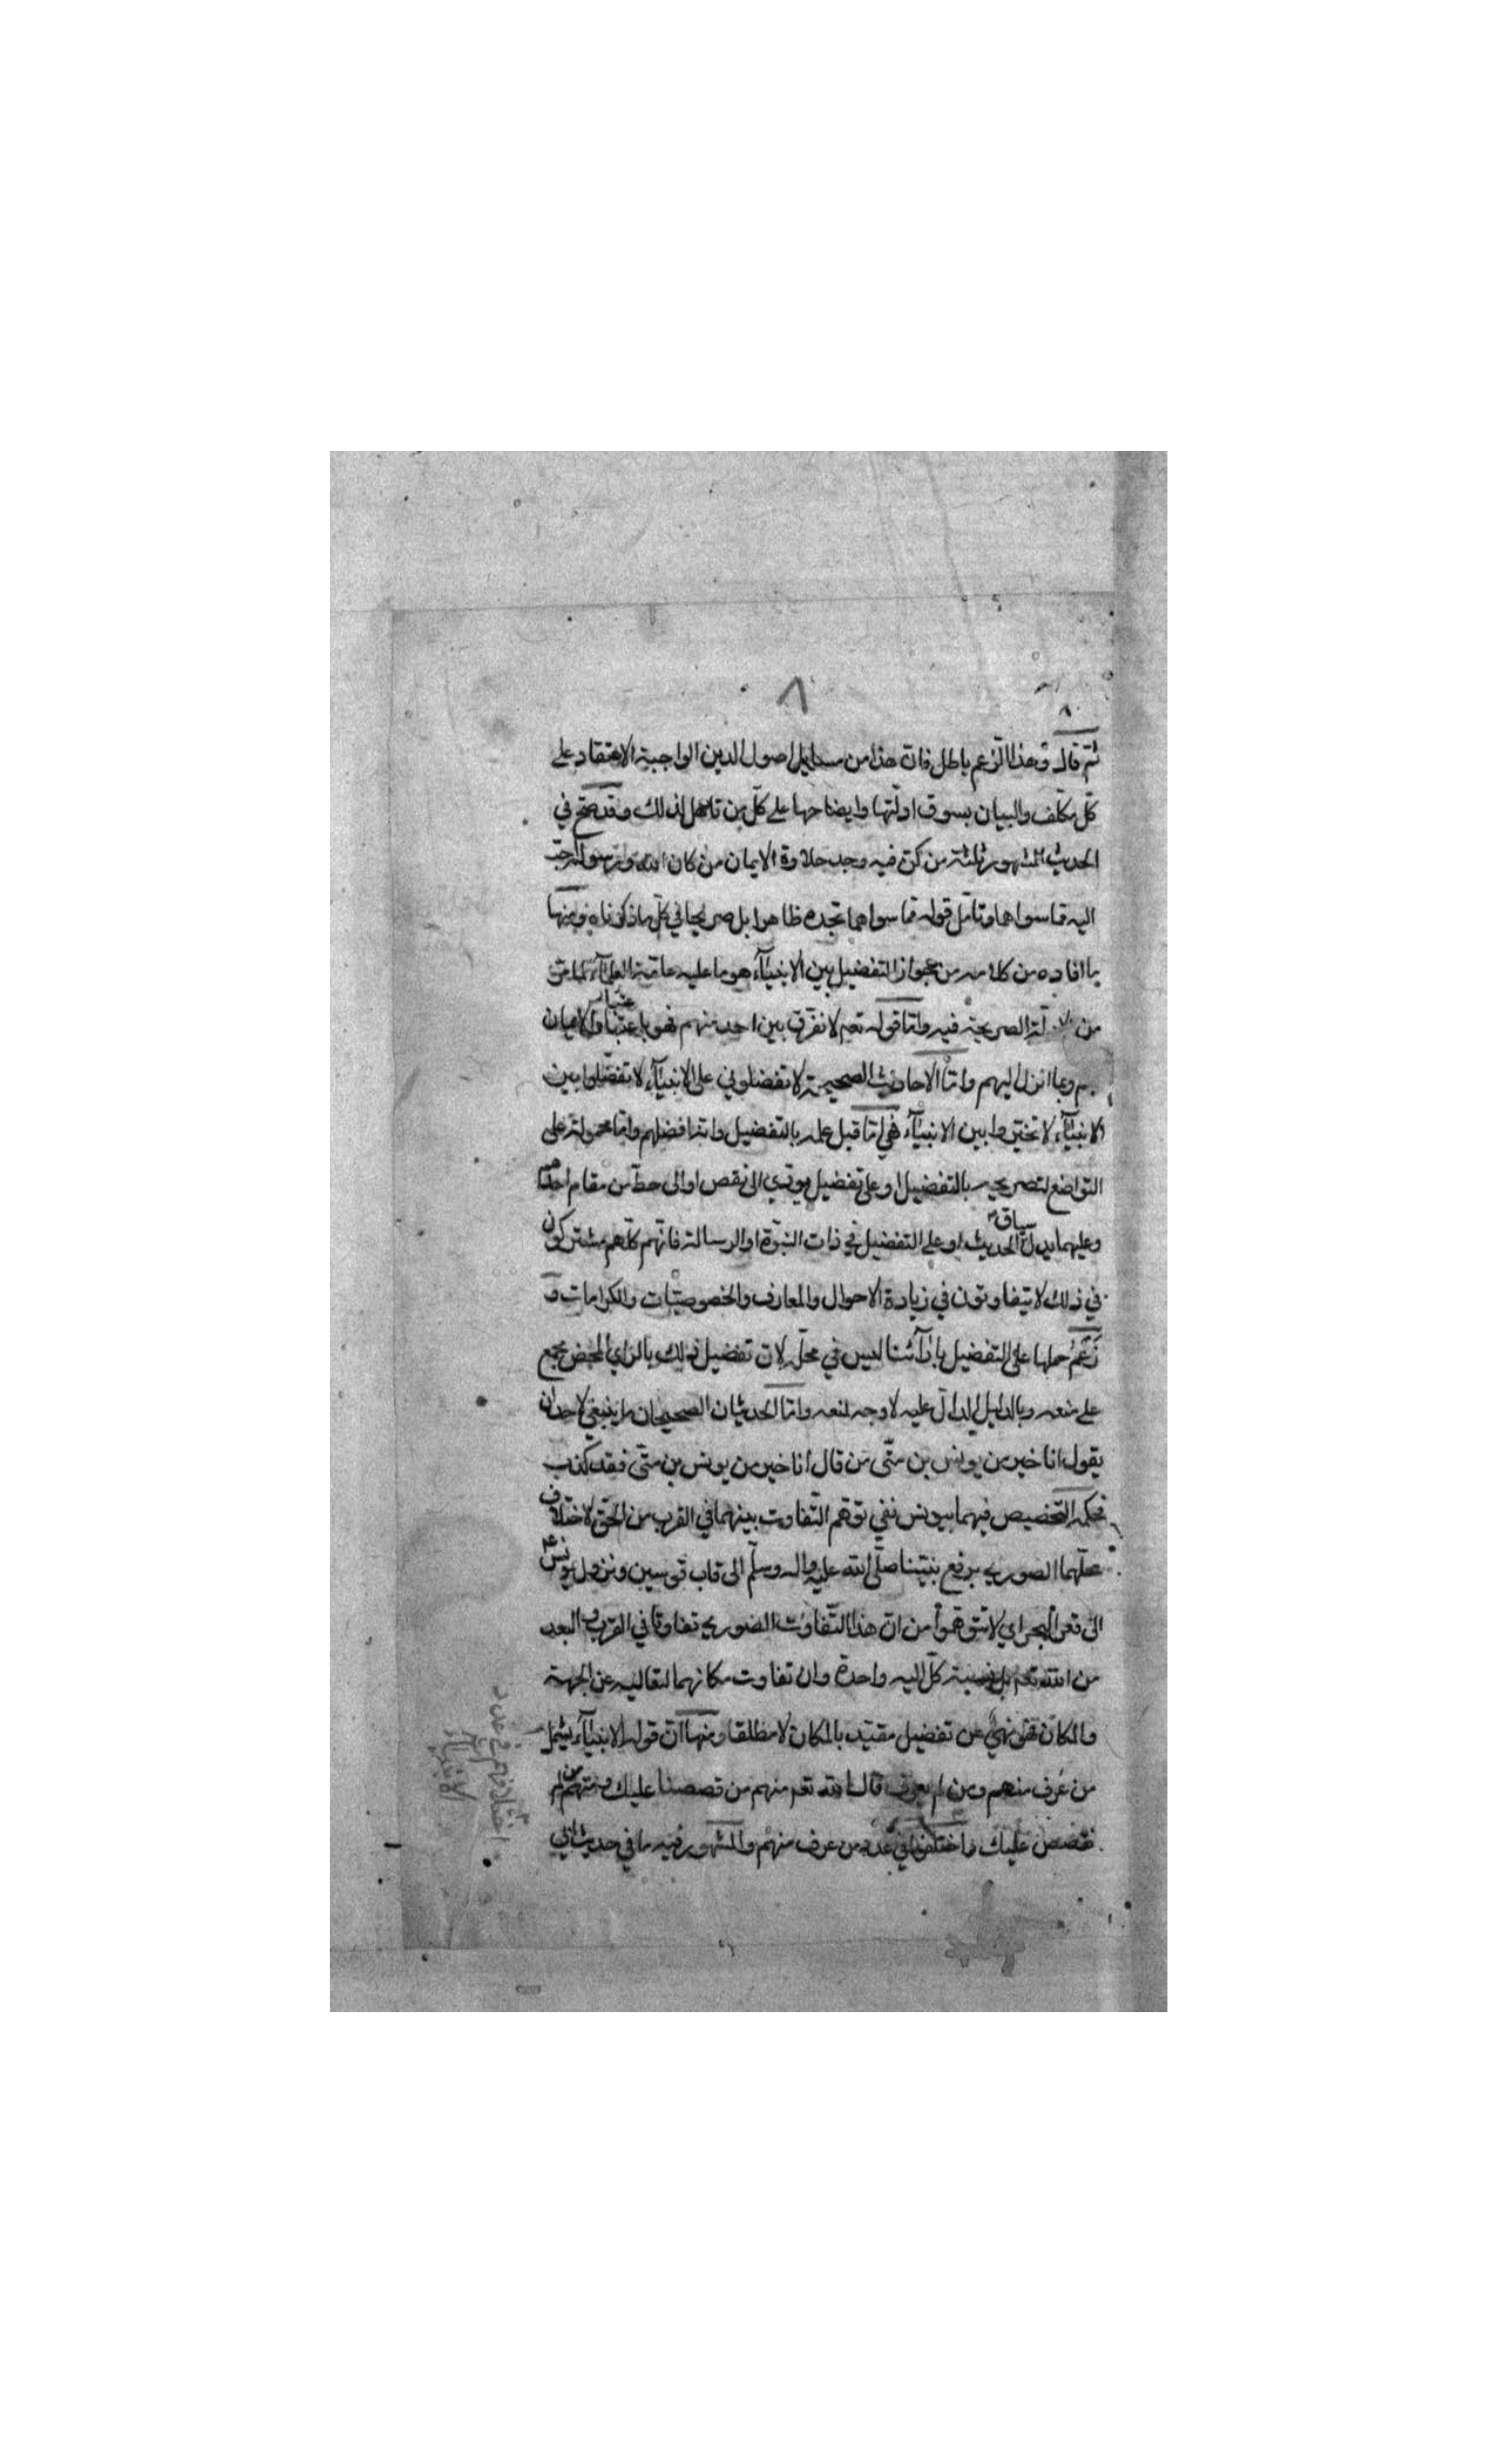 ٨
ثم قال وهذا الزعم باطل فان هذا من مسايل اصول الدين الواجبة الاعتقاد على
كل مكلف والبيان بسوق ادلتها وايضاحها على كل من تاهل لذلك وقد صح في
الحديث المشهور ثلثة من كن فيه وجد حلاوة الايمان من كان الله ورسوله احب
اليه مما سواهما وتامل قوله مما سواهما تجده ظاهرا بل صريحا في كل ما ذكرناه ومنها
ما افاده من كلامه من جواز التفضيل بين الانبيآء هو ما عليه عامة العلمآء
من الادلة الصريحة فيه واما قوله تعم لا نفرق بين احد منهم فهو باعتبار الايمان
بهم وبما انزل اليهم واما الاحاديث الصحيحة لا تفضلوني على الانبيآء لا تفضلوا بين
الانبيآء لا تخيروا بين الانبيآء فهي اما قبل علمه بالتفضيل وانه افضلهم واما محمولة على
التواضع لتصريحه بالتفضيل او على تفضيل يودي الى نقص او الى حط من مقام احدهم
وعليهما يدل سياق الحديث او على التفضيل في ذات النبوة او الرسالة فانهم كلهم مشتركون
في ذلك لا يتفاوتون في زيادة الاحوال والمعارف والخصوصيات والكرامات و
زعم حملها على التفضيل بارآئنا ليس في محله لان تفضيل ذلك بالراي المحض مجمع
على منعه وبالدليل الدال عليه لا وجه لمنعه واما الحديثان الصحيحان ما ينبغي لاحد ان
يقول انا خير من يونس بن متى من قال انا خير من يونس بن متى فقد كذب
فحكمة التخصيص فيهما بيونس نفي توهم التفاوت بينهما في القرب من الحق لاختلاف
محلهما الصوري برفع نبينا صلى الله عليه واله وسلم الى قاب قوسين ونزول يونس
الى قعر البحر اي لا تتوهموا من ان هذا التفاوت الصوري تفاوتا في القرب و البعد
من الله تعم بل نسبة كل اليه واحدة وان تفاوت مكانهما لتعاليه عن الجهة
والمكان فهو نهي عن تفضيل مقيد بالمكان لا مطلقا ومنها ان قوله الانبيآء يشمل
من عرف منهم ومن لم يعرف قال الله تعم منهم من قصصنا عليك ومنهم من لم
نقصص عليك واختلف في عدد من عرف منهم والمشهور فيه ما في حديث ابي
اختلافهم في عدد
الانبياء